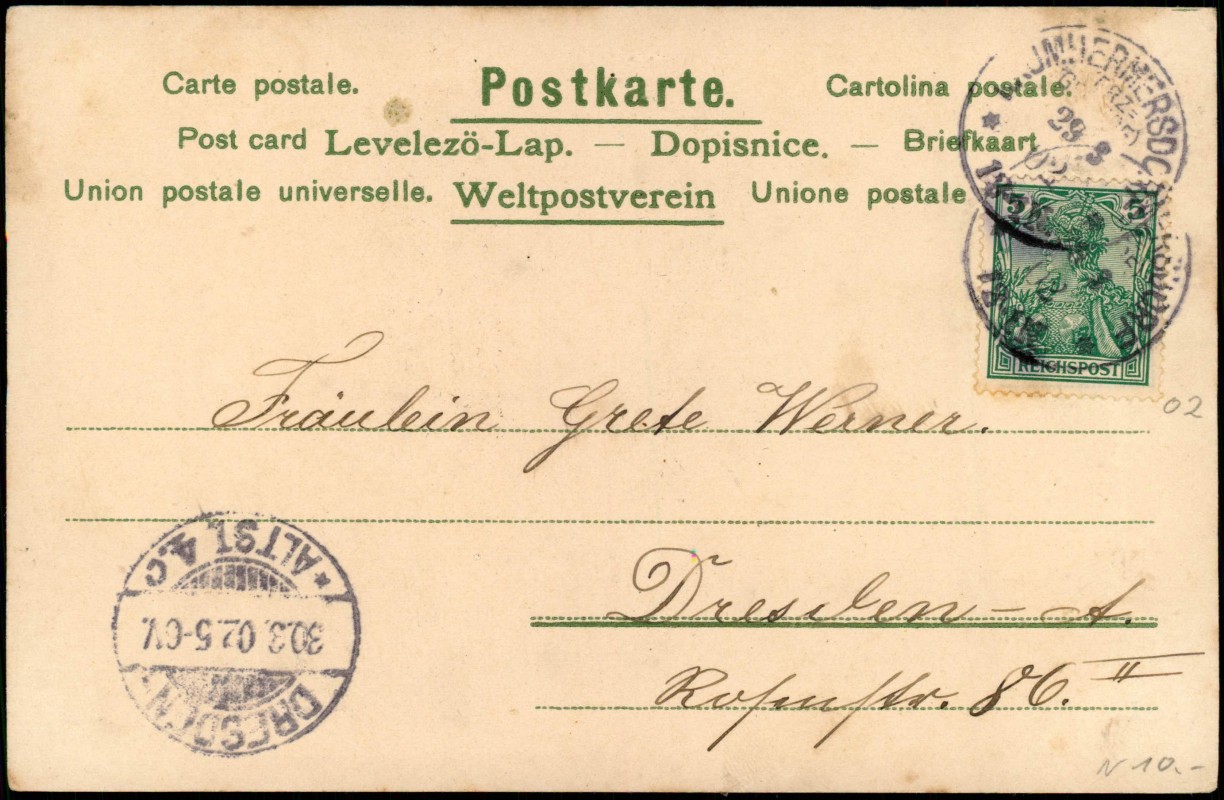 Carte postale. Postkarte. Cartolina postale.
Post card Levelezö-Lap. — Dopisnice. — Briefkaart
Union postale universelle. Weltpostverein Unione postale
29 3
5 5
REICHSPOST
02
Fräulein Grete Werner.
Dresden-A.
Rosenstr. 86. II
*ALTST. 4.c
30.3.02.5-6V.
DRESDEN
N 10.-